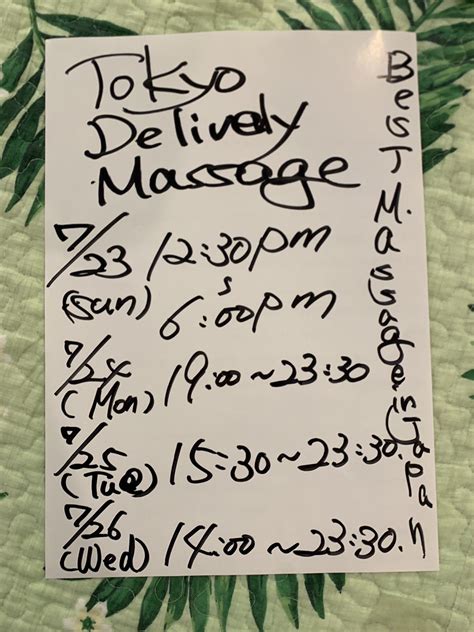 Tokyo
Delively
Massage
7/23 12:30pm
(sun) s
6:00pm
7/24
(Mon) 19:00~23:30
7/25
(Tue) 15:30~23:30.
7/26
(Wed) 14:00~23:30.
BesT Massage in Japan